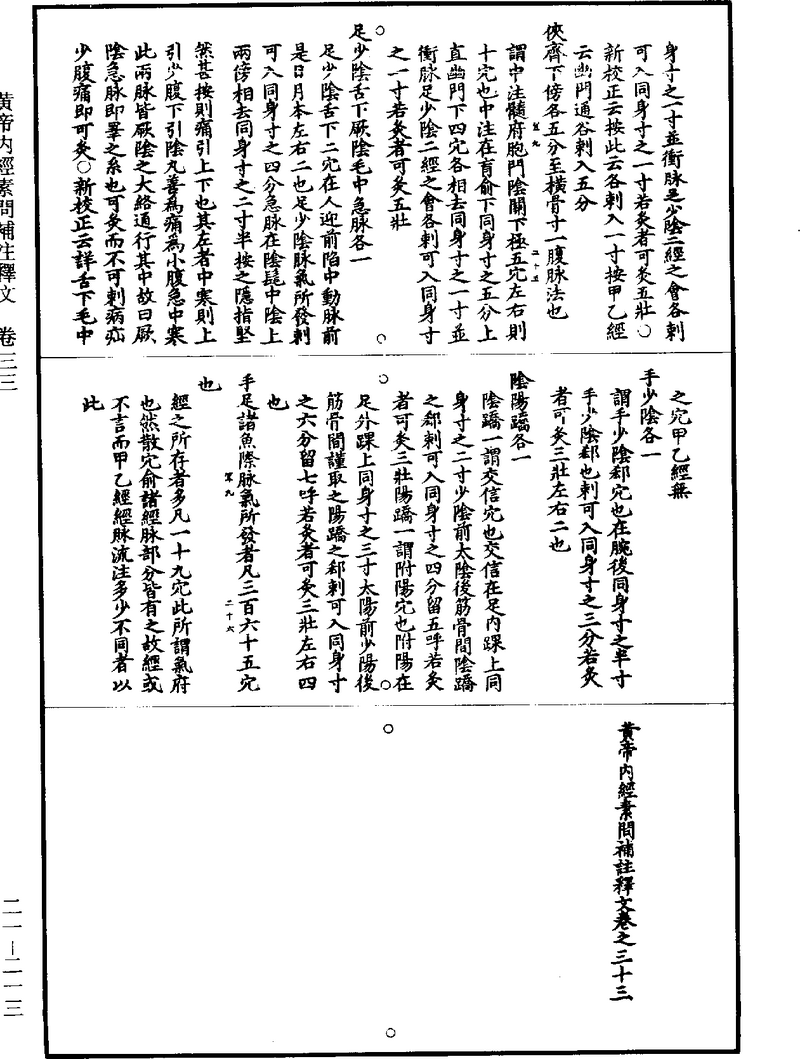 身寸之一寸並衝脉足少陰二經之會各刺
可入同身寸之一寸若灸者可灸五壯○
新校正云按此云各刺入一寸按甲乙經
云幽門通谷刺入五分
俠齊下傍各五分至橫骨寸一腹脉法也
謂中注髓府胞門陰關下極五穴左右則
十穴也中注在肓俞下同身寸之五分上
直幽門下四穴各相去同身寸之一寸並
衝脉足少陰二經之會各刺可入同身寸
之一寸若灸者可灸五壯
足少陰舌下厥陰毛中急脉各一
足少陰舌下二穴在人迎前陷中動脉前
是日月本左右二也足少陰脉氣所發刺
可入同身寸之四分急脉在陰髦中陰上
兩傍相去同身寸之二寸半按之隱指堅
然甚按則痛引上下也其左者中寒則上
引少腹下引陰丸善為痛為小腹急中寒
此兩脉皆厥陰之大絡通行其中故曰厥
陰急脉即睪之系也可灸而不可刺病疝
少腹痛即可灸○新校正云詳舌下毛中
之穴甲乙經無
手少陰各一
謂手少陰郄穴也在腕後同身寸之半寸
手少陰郄也刺可入同身寸之三分若灸
者可灸三壯左右二也
陰陽蹻各一
陰蹻一謂交信穴也交信在足內踝上同
身寸之二寸少陰前太陰後筋骨間陰蹻
之郄刺可入同身寸之四分留五呼若灸
者可灸三壯陽蹻一謂附陽穴也附陽在
足外踝上同身寸之三寸太陽前少陽後
筋骨間謹取之陽蹻之郄刺可入同身寸
之六分留七呼若灸者可灸三壯左右四
也
手足諸魚際脉氣所發者凡三百六十五穴
也
經之所存者多凡一十九穴此所謂氣府
也然散穴俞諸經脉部分皆有之故經或
不言而甲乙經經脉流注多少不同者以
此
黃帝內經素問補註釋文卷之三十三
黃帝內經素問補註釋文 卷三三
二一—二一三